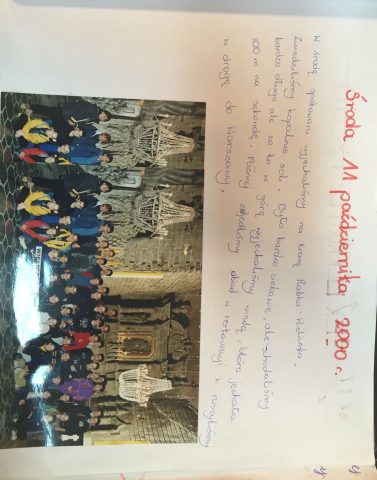 Środa 11 października 2000 r.
W środę spakowani wyjechaliśmy na trasę Rabka-Wieliczka.
Zwiedzaliśmy kopalnię soli. Było bardzo ciekawie, ale schodziliśmy
bardzo długo ale za to w górę wyjechaliśmy windą, która jechała
100 m na sekundę. Później zjedliśmy obiad w restauracji i ruszyliśmy
w drogę do Warszawy.